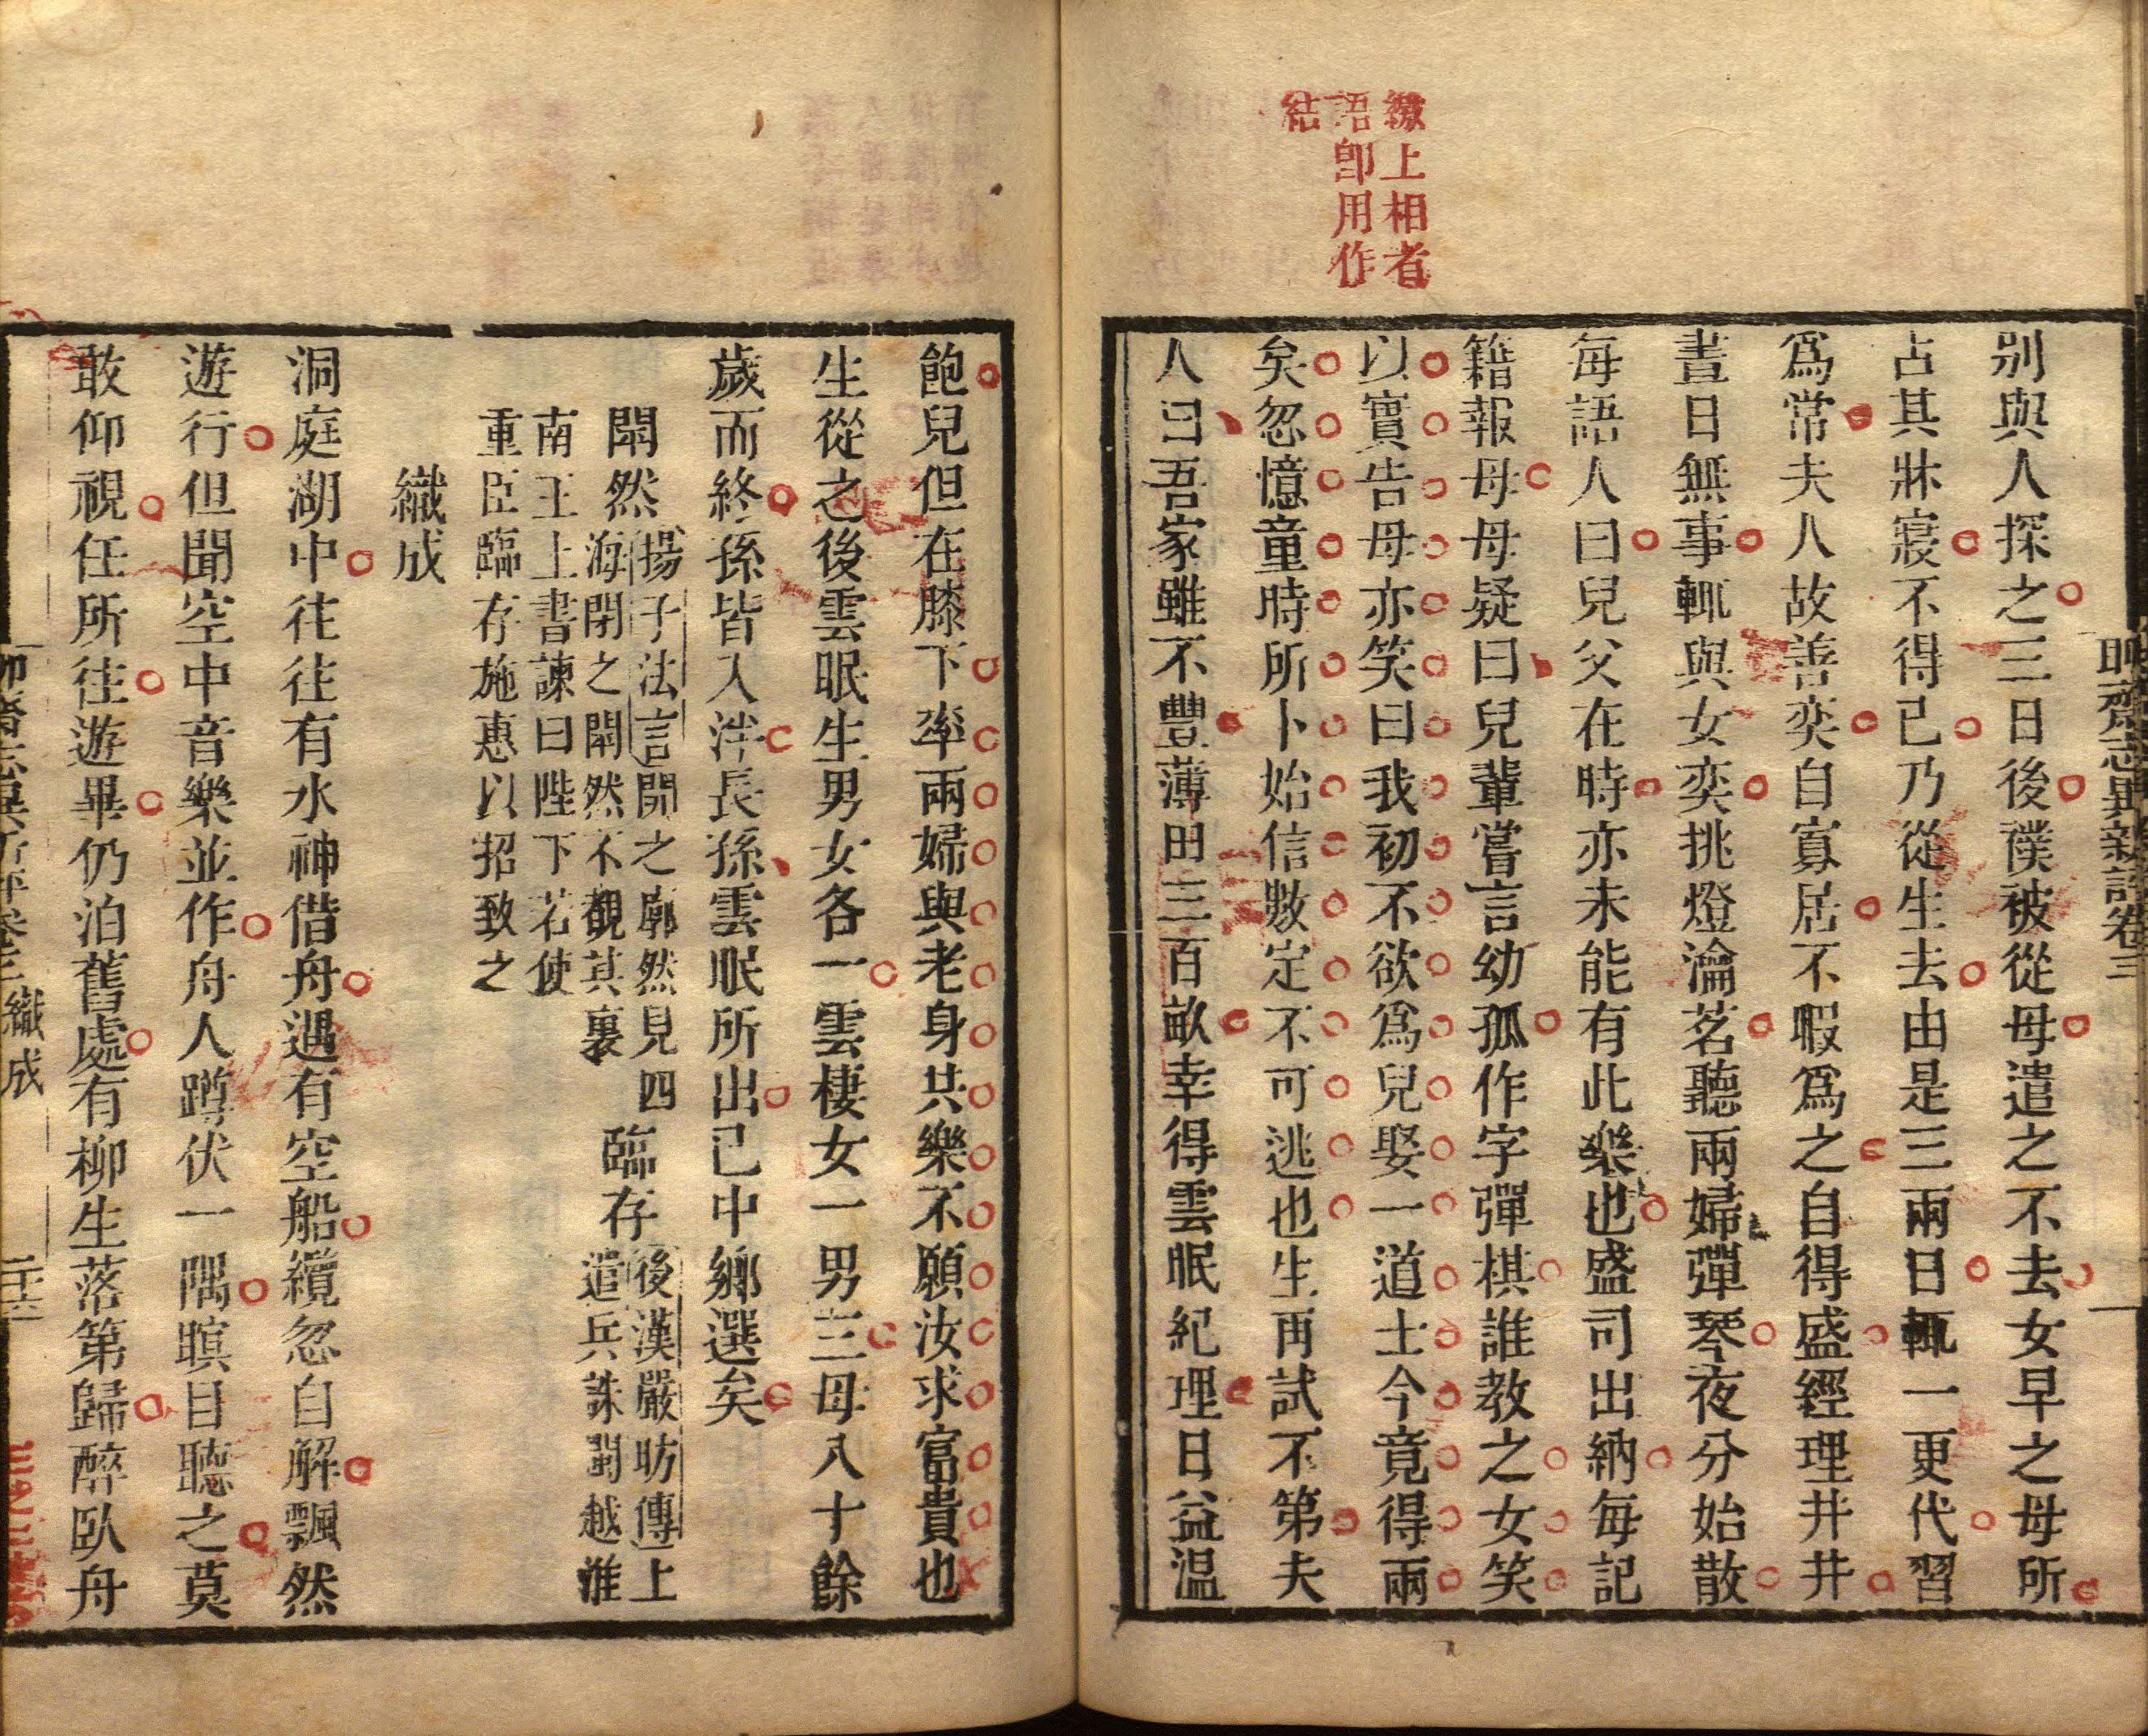 聊齋志異新評卷三
繳上相者
語卽用作
結
别與人探之三日後襆被從母遣之不去女早之母所
占其牀寢不得已乃從生去由是三兩日輒一更代習
爲常夫人故善奕自寡居不暇爲之自得盛經理井井
晝日無事輒與女奕挑燈瀹茗聽兩婦彈琴夜分始散
每語人曰兒父在時亦未能有此樂也盛司出納每記
籍報母母疑曰兒輩嘗言幼孤作字彈棋誰教之女笑
以實告母亦笑曰我初不欲爲兒娶一道士今竟得兩
矣忽憶童時所卜始信數定不可逃也生再試不第夫
人曰吾家雖不豐薄田三百畝幸得雲眠紀理日益温
飽兒但在膝下率兩婦與老身共樂不願汝求富貴也
生從之後雲眠生男女各一雲棲女一男三母八十餘
歲而終孫皆入泮長孫雲眠所出已中鄉選矣
閴然 揚子法言開之廓然見四
海閉之閴然不覩其裏 臨存 後漢嚴昉傳上
遣兵誅閩越淮
南王上書諫曰陛下若使
重臣臨存施惠以招致之
織成
洞庭湖中往往有水神借舟遇有空船纜忽自解飄然
遊行但聞空中音樂並作舟人蹲伏一隅瞑目聽之莫
敢仰視任所往遊畢仍泊舊處有柳生落第歸醉臥舟
聊齋志異新評卷三 織成